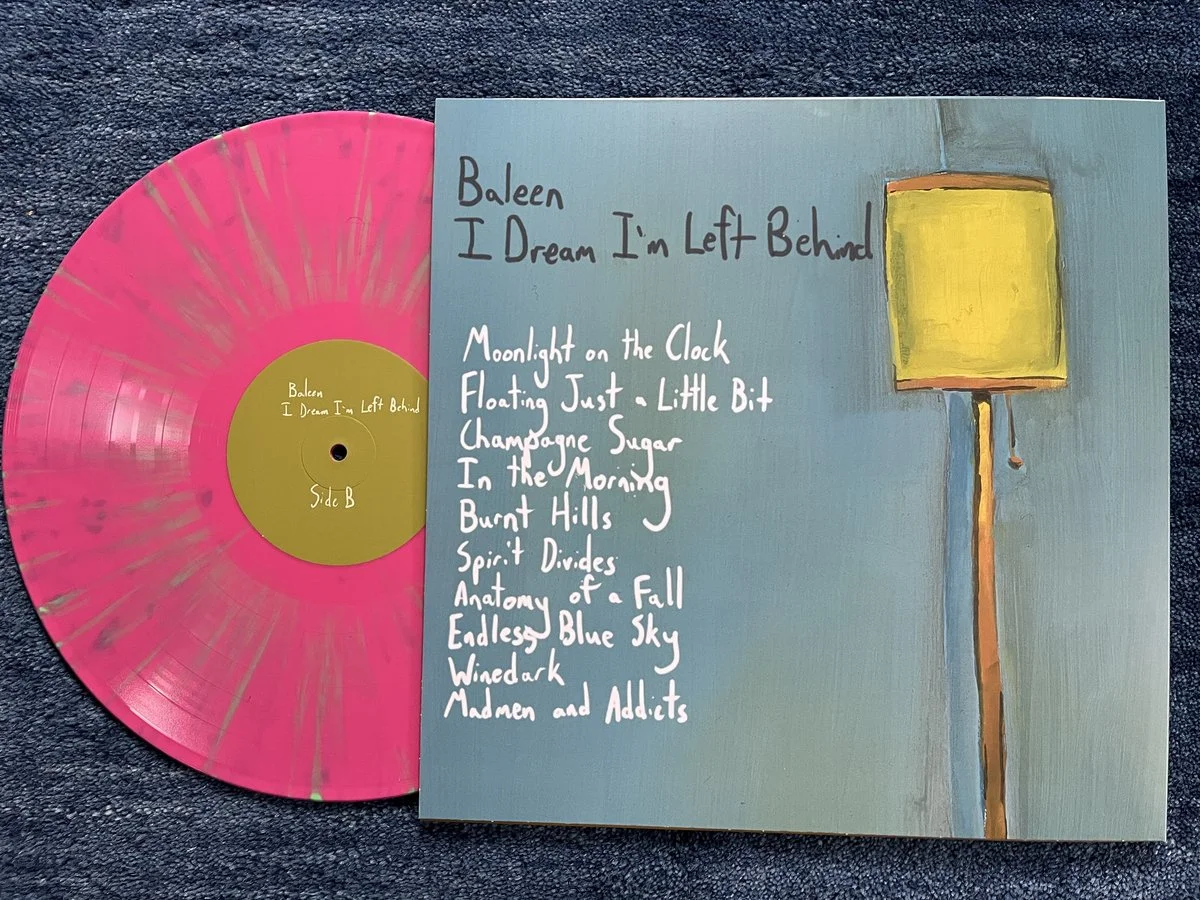 Baleen
I Dream I'm Left Behind
Side B
Baleen
I Dream I'm Left Behind
Moonlight on the Clock
Floating Just a Little Bit
Champagne Sugar
In the Morning
Burnt Hills
Spirit Divides
Anatomy of a Fall
Endless Blue Sky
Winedark
Madmen and Addicts